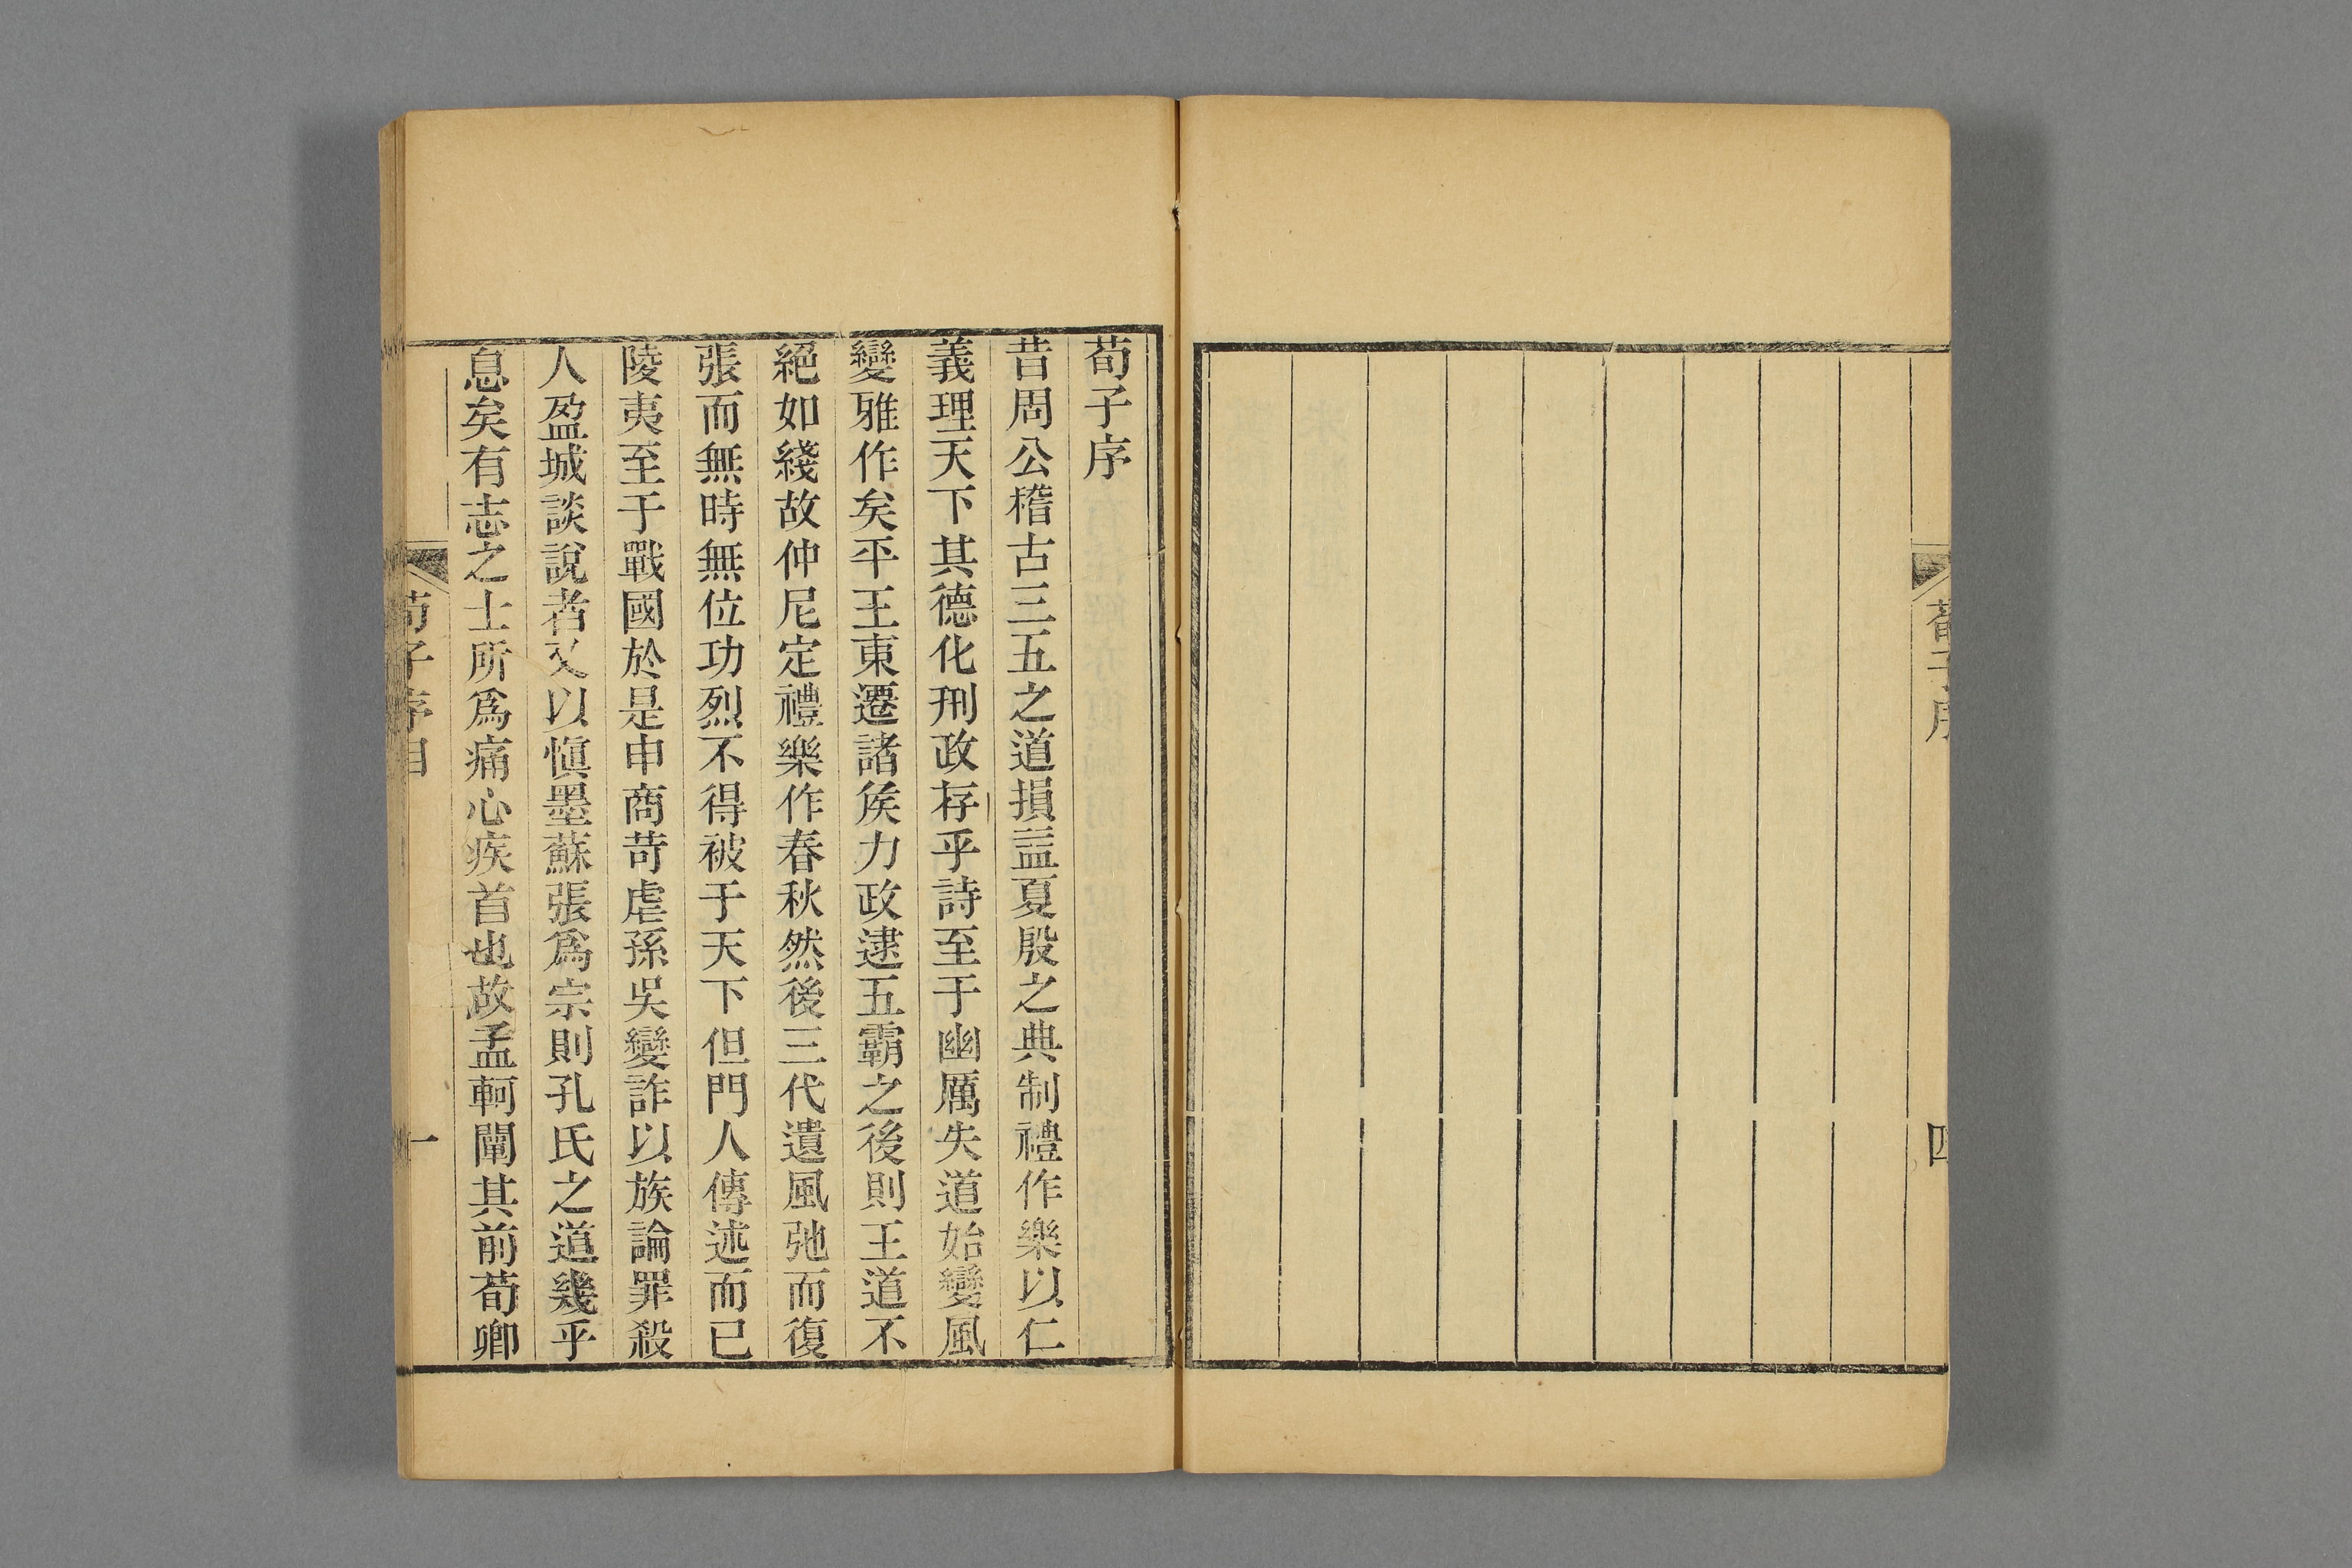 荀子序
四
荀子序
昔周公稽古三五之道損益夏殷之典制禮作樂以仁
義理天下其德化刑政存乎詩至于幽厲失道始變風
變雅作矣平王東遷諸矦力政逮五霸之後則王道不
絕如綫故仲尼定禮樂作春秋然後三代遺風弛而復
張而無時無位功烈不得被于天下但門人傳述而已
陵夷至于戰國於是申商苛虐孫吳變詐以族論罪殺
人盈城談說者又以愼墨蘇張爲宗則孔氏之道幾乎
息矣有志之士所爲痛心疾首也故孟軻闡其前荀卿
荀子序目
一